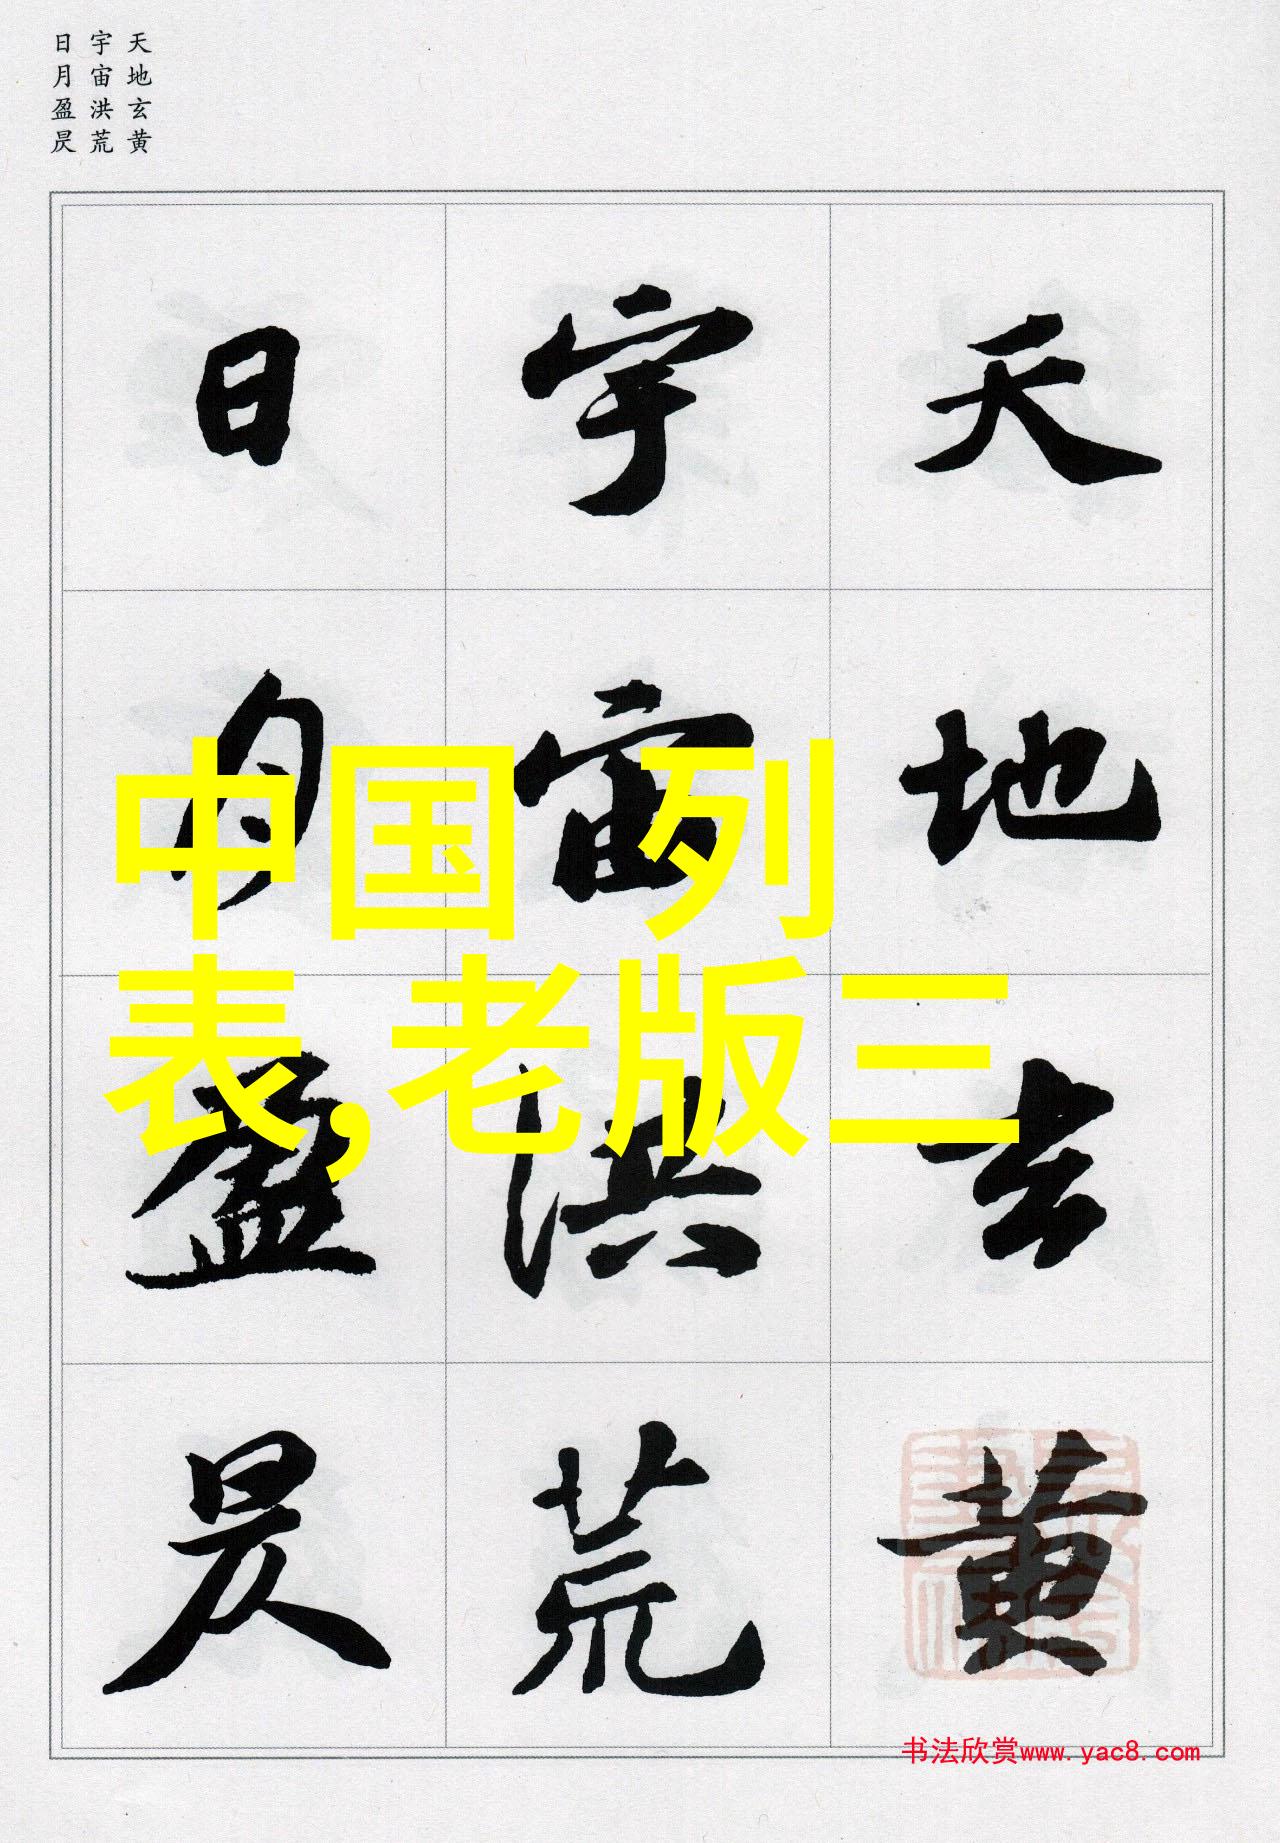 天地玄黄
宇宙洪荒
日月盈昃
天地玄黄
宇宙洪荒
日月盈昃
中国 列
表,老版三
书法欣赏www.yac8.com